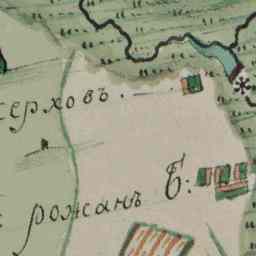 ерховъ.
рожанъ Б: